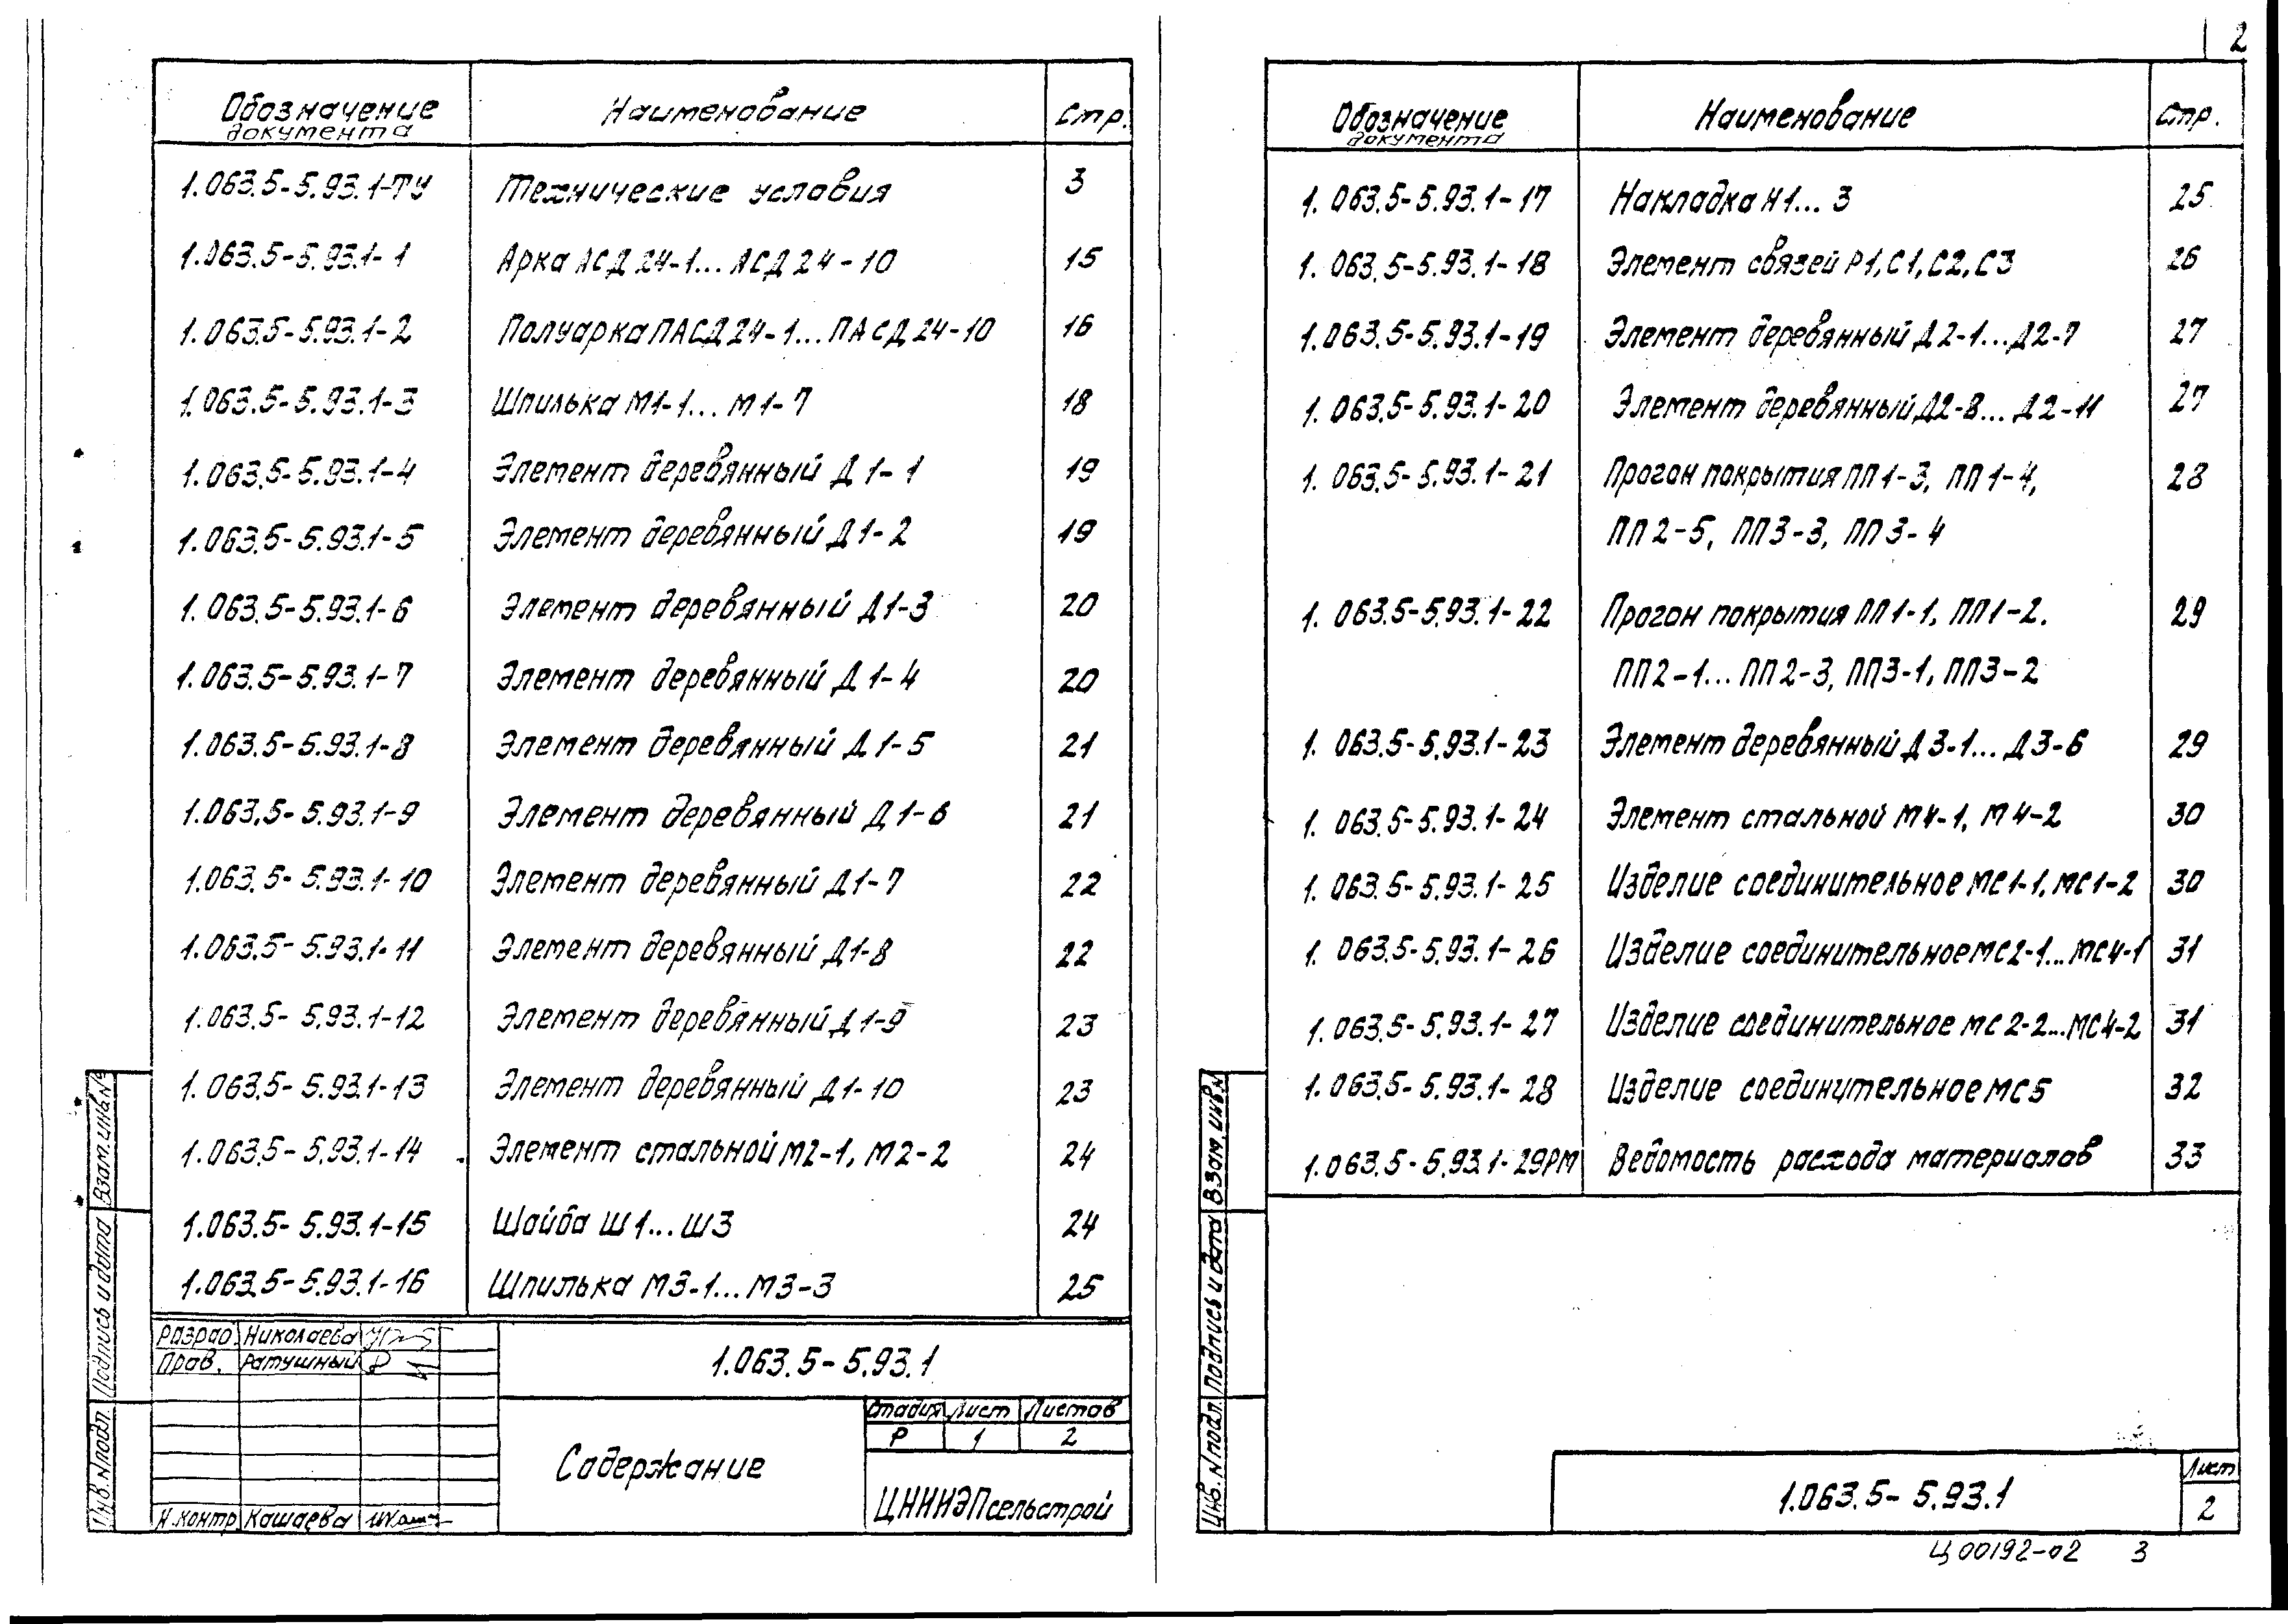 Обозначение документа Наименование Стр.
1.063.5-5.93.1-ТУ Технические условия 3
1.063.5-5.93.1-1 Арка АСД 24-1...АСД 24-10 15
1.063.5-5.93.1-2 Полуарка ПАСД 24-1...ПАСД 24-10 16
1.063.5-5.93.1-3 Шпилька М1-1...М1-7 18
1.063.5-5.93.1-4 Элемент деревянный Д1-1 19
1.063.5-5.93.1-5 Элемент деревянный Д1-2 19
1.063.5-5.93.1-6 Элемент деревянный Д1-3 20
1.063.5-5.93.1-7 Элемент деревянный Д1-4 20
1.063.5-5.93.1-8 Элемент деревянный Д1-5 21
1.063.5-5.93.1-9 Элемент деревянный Д1-6 21
1.063.5-5.93.1-10 Элемент деревянный Д1-7 22
1.063.5-5.93.1-11 Элемент деревянный Д1-8 22
1.063.5-5.93.1-12 Элемент деревянный Д1-9 23
1.063.5-5.93.1-13 Элемент деревянный Д1-10 23
1.063.5-5.93.1-14 Элемент стальной М2-1, М2-2 24
1.063.5-5.93.1-15 Шайба Ш1...Ш3 24
1.063.5-5.93.1-16 Шпилька М3-1...М3-3 25
Разраб. Николаева
Пров. Ратушный
Н.контр Кашаева
1.063.5-5.93.1
Содержание
Стадия Лист Листов
Р 1 2
ЦНИИЭПсельстрой
Инв. N подл. Подпись и дата Взам. инв. №
2
Обозначение документа Наименование Стр.
1.063.5-5.93.1-17 Накладка Н1...3 25
1.063.5-5.93.1-18 Элемент связей Р1, С1, С2, С3 26
1.063.5-5.93.1-19 Элемент деревянный Д2-1...Д2-7 27
1.063.5-5.93.1-20 Элемент деревянный Д2-8...Д2-11 27
1.063.5-5.93.1-21 Прогон покрытия ПП1-3, ПП1-4, 28
ПП2-5, ПП3-3, ПП3-4
1.063.5-5.93.1-22 Прогон покрытия ПП1-1, ПП1-2. 29
ПП2-1...ПП2-3, ПП3-1, ПП3-2
1.063.5-5.93.1-23 Элемент деревянный Д3-1...Д3-6 29
1.063.5-5.93.1-24 Элемент стальной М4-1, М4-2 30
1.063.5-5.93.1-25 Изделие соединительное МС1-1, МС1-2 30
1.063.5-5.93.1-26 Изделие соединительное МС2-1...МС4-1 31
1.063.5-5.93.1-27 Изделие соединительное МС2-2...МС4-2 31
1.063.5-5.93.1-28 Изделие соединительное МС5 32
1.063.5-5.93.1-29РМ Ведомость расхода материалов 33
Инв. N подл. Подпись и дата Взам. инв. N
1.063.5-5.93.1
Лист
2
Ц00192-02 3